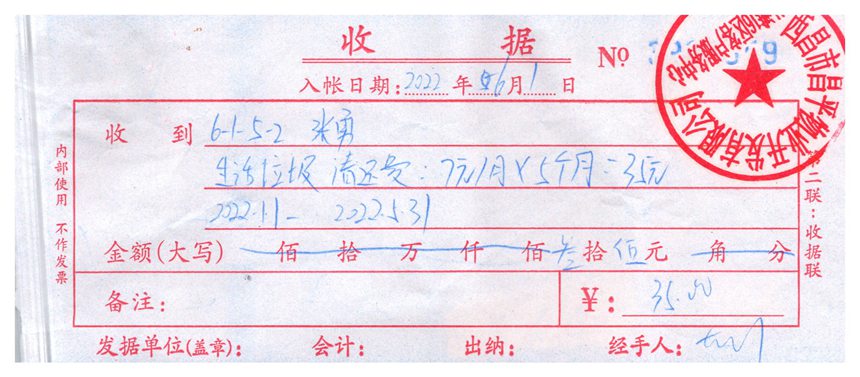 收 据
№
入帐日期:2022年6月1日
收 到 6-1-5-2 张勇
生活垃圾清运费:7元/月×5个月=35元
2022.1.1- 2022.5.31
金额(大写) 佰 拾 万 仟 佰 叁拾 伍元 角 分
备注: ¥: 35.00
发据单位(盖章): 会计: 出纳: 经手人:
内部使用 不作发票
第二联:收据联
西昌市昌平物业开发有限公司
区客户服务中心